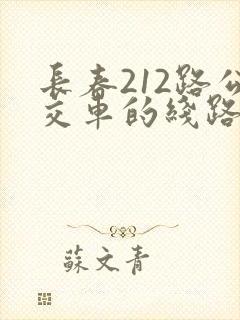 長春212路公
交車的綫路
蘇文青